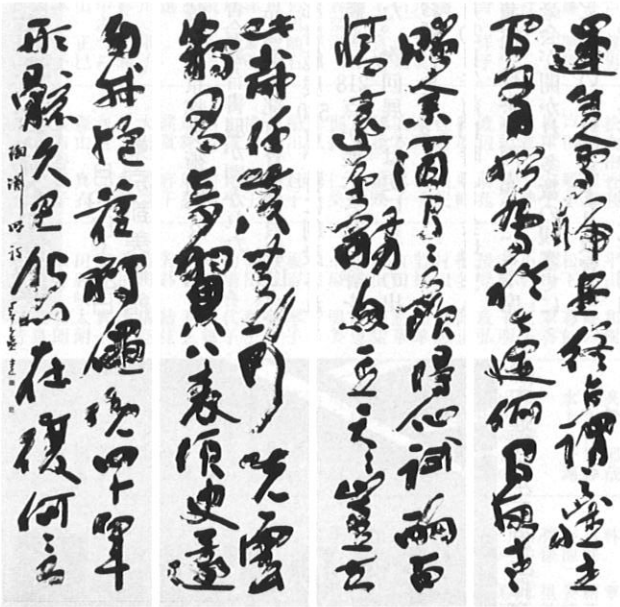 運生會歸盡終古謂之然世
間有松喬於今定何間故老
贈余酒乃言飲得仙試酌百
情遠重觴忽忘天天豈去
此哉任真無所先雲
鶴有奇翼八表須臾還
自我抱茲獨僶俛四十年
形骸久已化心在復何言
陶淵明詩